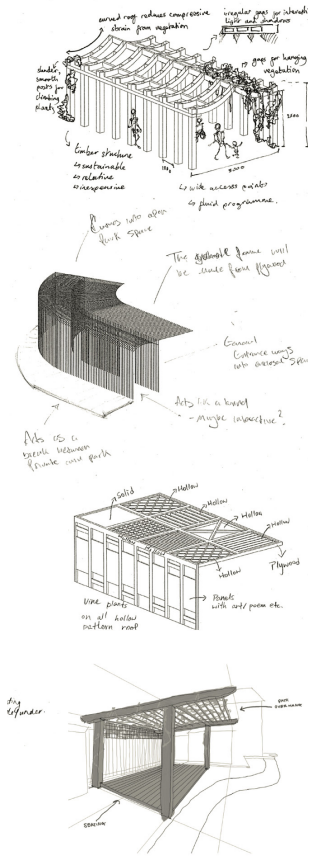 curved roof reduces compressive
strain from vegetation
irregular gaps for interesti
light and shadows
gaps for hanging
vegetation
slender,
smooth
posts for
climbing
plants
timber structure
↳ sustainable
↳ relative
↳ inexpensive
↳ wide access points
↳ fluid programme.
Curves into open
park space
The frame will
be made from plywood
Entrance ways
into enclosed Spac
Acts like a tunnel
- maybe interactive?
Acts as a
break between
Private and park
Solid
Hollow
Hollow
Hollow
Hollow
Plywood
Hollow
Vine plants
on all hollow
pattern roof
Panels
with art/poem etc.
ting
under.
OVERHANG